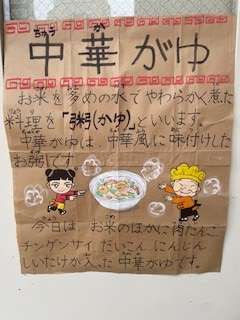 ちゅう か
中華がゆ
お米を多めの水でやわらかく煮た
料理を「粥(かゆ)」といいます。
中華がゆは、中華風に味付けした
お粥です
今日は、お米のほかに肉だんご
チンゲンサイ だいこん にんじん
しいたけが入った中華がゆです。